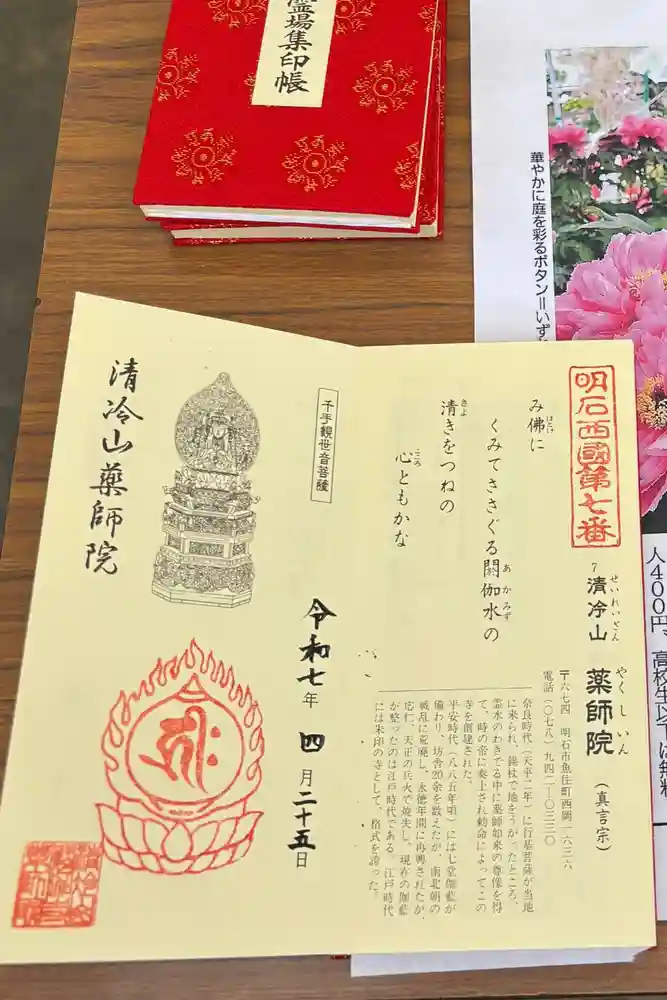 霊場集印帳
華やかに庭を彩るボタン＝いず
人400円、高校生以下は無料
明石西國第七番
7 清冷山 薬師院 (真言宗)
せいれいざん
やくしいん
〒六七四 明石市魚住町西岡一六三六
電話(〇七八)九四二-〇三三〇
み佛に
ほとけ
くみてささぐる閼伽水の
あかみず
清きをつねの
きよ
心ともかな
こころ
奈良時代(天平二年)に行基菩薩が当地
に来られ、錫杖で地をうがったところ、
霊水のわきでる中に薬師如来の尊像を得
て、時の帝に奏上され勅命によってこの
寺を創建された。
平安時代(八八五年頃)には七堂伽藍が
備わり、坊舎20余を数えたが、南北朝の
戦乱に荒廃し、永徳年間に再興されたが、
応仁、天正の兵火で焼失し、現在の伽藍
が整ったのは江戸時代である。江戸時代
には朱印の寺として、格式を誇った。
千手観世音菩薩
令和七年 四月二十五日
清冷山薬師院